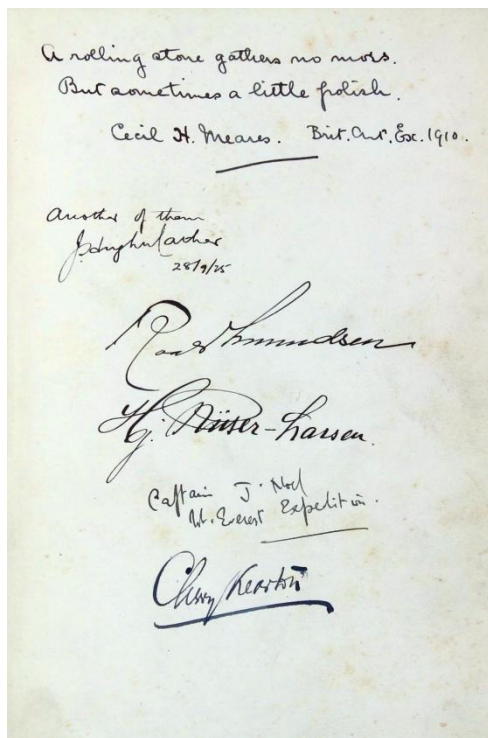 A rolling stone gathers no moss.
But sometimes a little polish.
Cecil H. Meares. Brit. Ant. Ex. 1910.
Another of them
J. Foster Stackhouse
28/9/25
Roald Amundsen
Hj. Riiser-Larsen.
Captain J. Noel
Mt. Everest Expedition.
Cherry Kearton